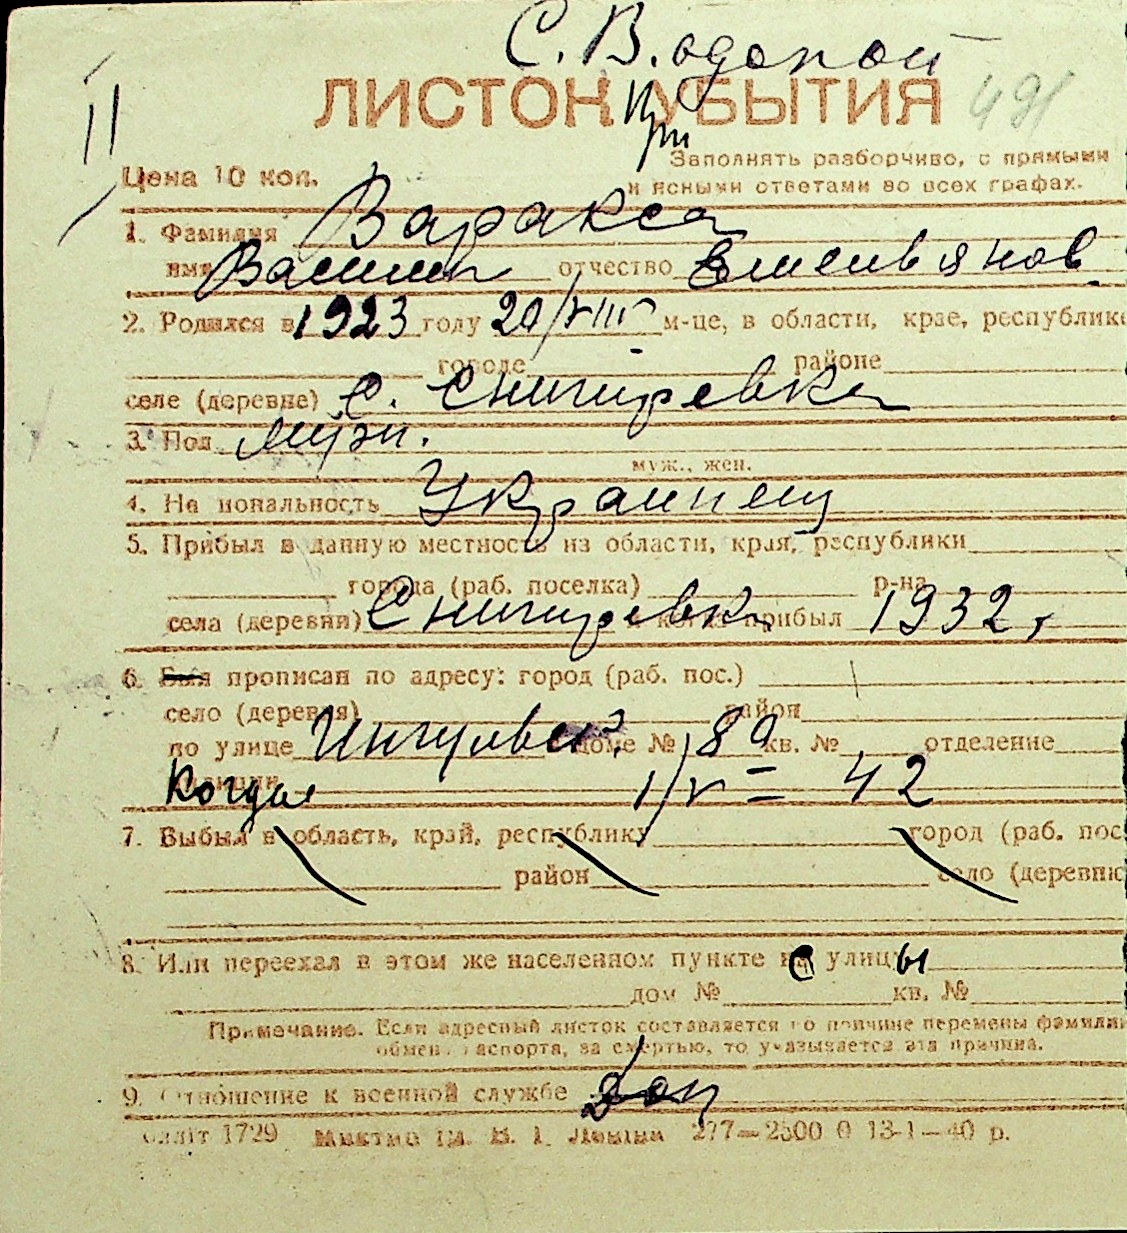 С. Водопой
ЛИСТОК УБЫТИЯ
При
491
II
Цена 10 коп.
Заполнять разборчиво, с прямыми
и ясными ответами во всех графах.
1. ФамилияВаракса
имя Василь отчество Емельянов.
2. Родился в 1923 году 20/VIII м-це, в области, крае, республике
городе районе
селе (деревне) с. Снигиревка
3. Пол муж.
муж., жен.
4. Национальность Украинец
5. Прибыл в данную местность из области, края, республики
города (раб. поселка) р-на
села (деревни) Снигиревка и когда прибыл 1932 г
6. Был прописан по адресу: город (раб. пос.)
село (деревня) район
по улице Ингульск. доме № 89 кв. № отделение
милиции Когда 1/V = 42
7. Выбыл в область, край, республику город (раб. пос
район село (деревню
8. Или переехал в этом же населенном пункте с улицы
дом № кв. №
Примечание. Если адресный листок составляется по причине перемены фамилии
обмена паспорта, за смертью, то указывается эта причина.
9. Отношение к военной службе Доп
Обллiт 1729 277—2500 0 13-1—40 р.